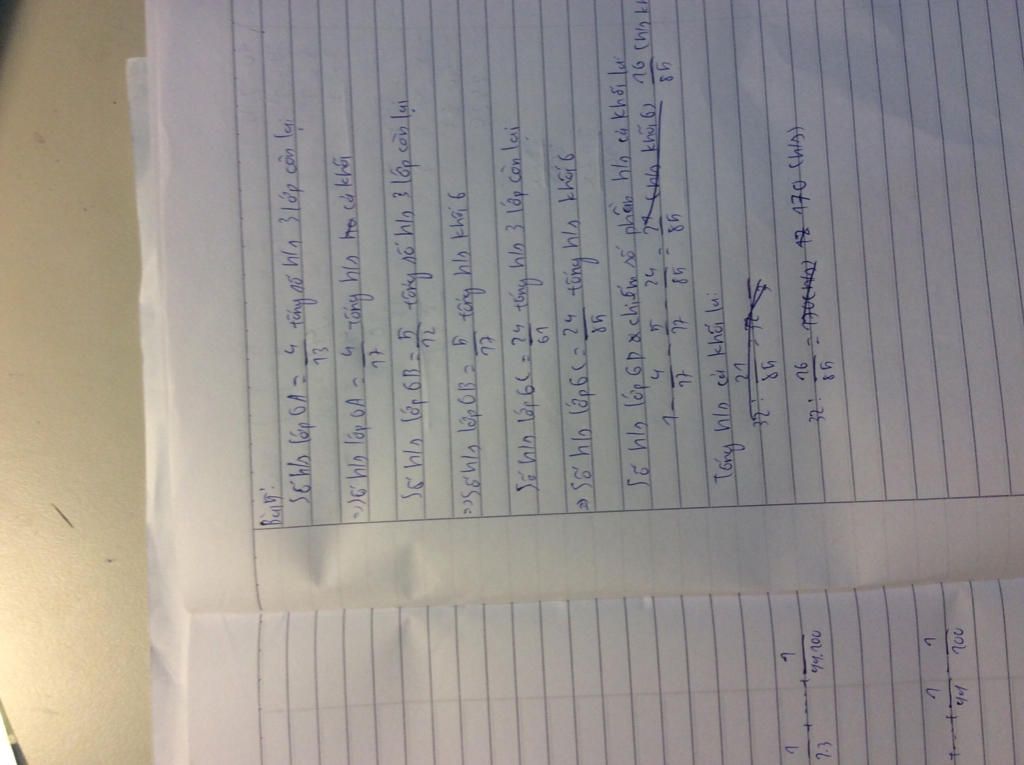 Bài 4:
Số h/s lớp 6A = 4/13 tổng số h/s 3 lớp còn lại
=> Số h/s lớp 6A = 4/17 tổng h/s cả khối
Số h/s lớp 6B = 5/12 tổng số h/s 3 lớp còn lại
=> Số h/s lớp 6B = 5/17 tổng h/s khối 6
Số h/s lớp 6C = 24/61 tổng h/s 3 lớp còn lại
=> Số h/s lớp 6C = 24/85 tổng h/s khối 6
Số h/s lớp 6D chiếm số phần h/s cả khối là:
1 - 4/17 - 5/17 - 24/85 = 16/85 (h/s
Tổng h/s cả khối là:
32 : 21/85
32 : 16/85 = 170 (h/s)
1/2.3 + ... + 1/99.100
+ ... + 1/99 - 1/100